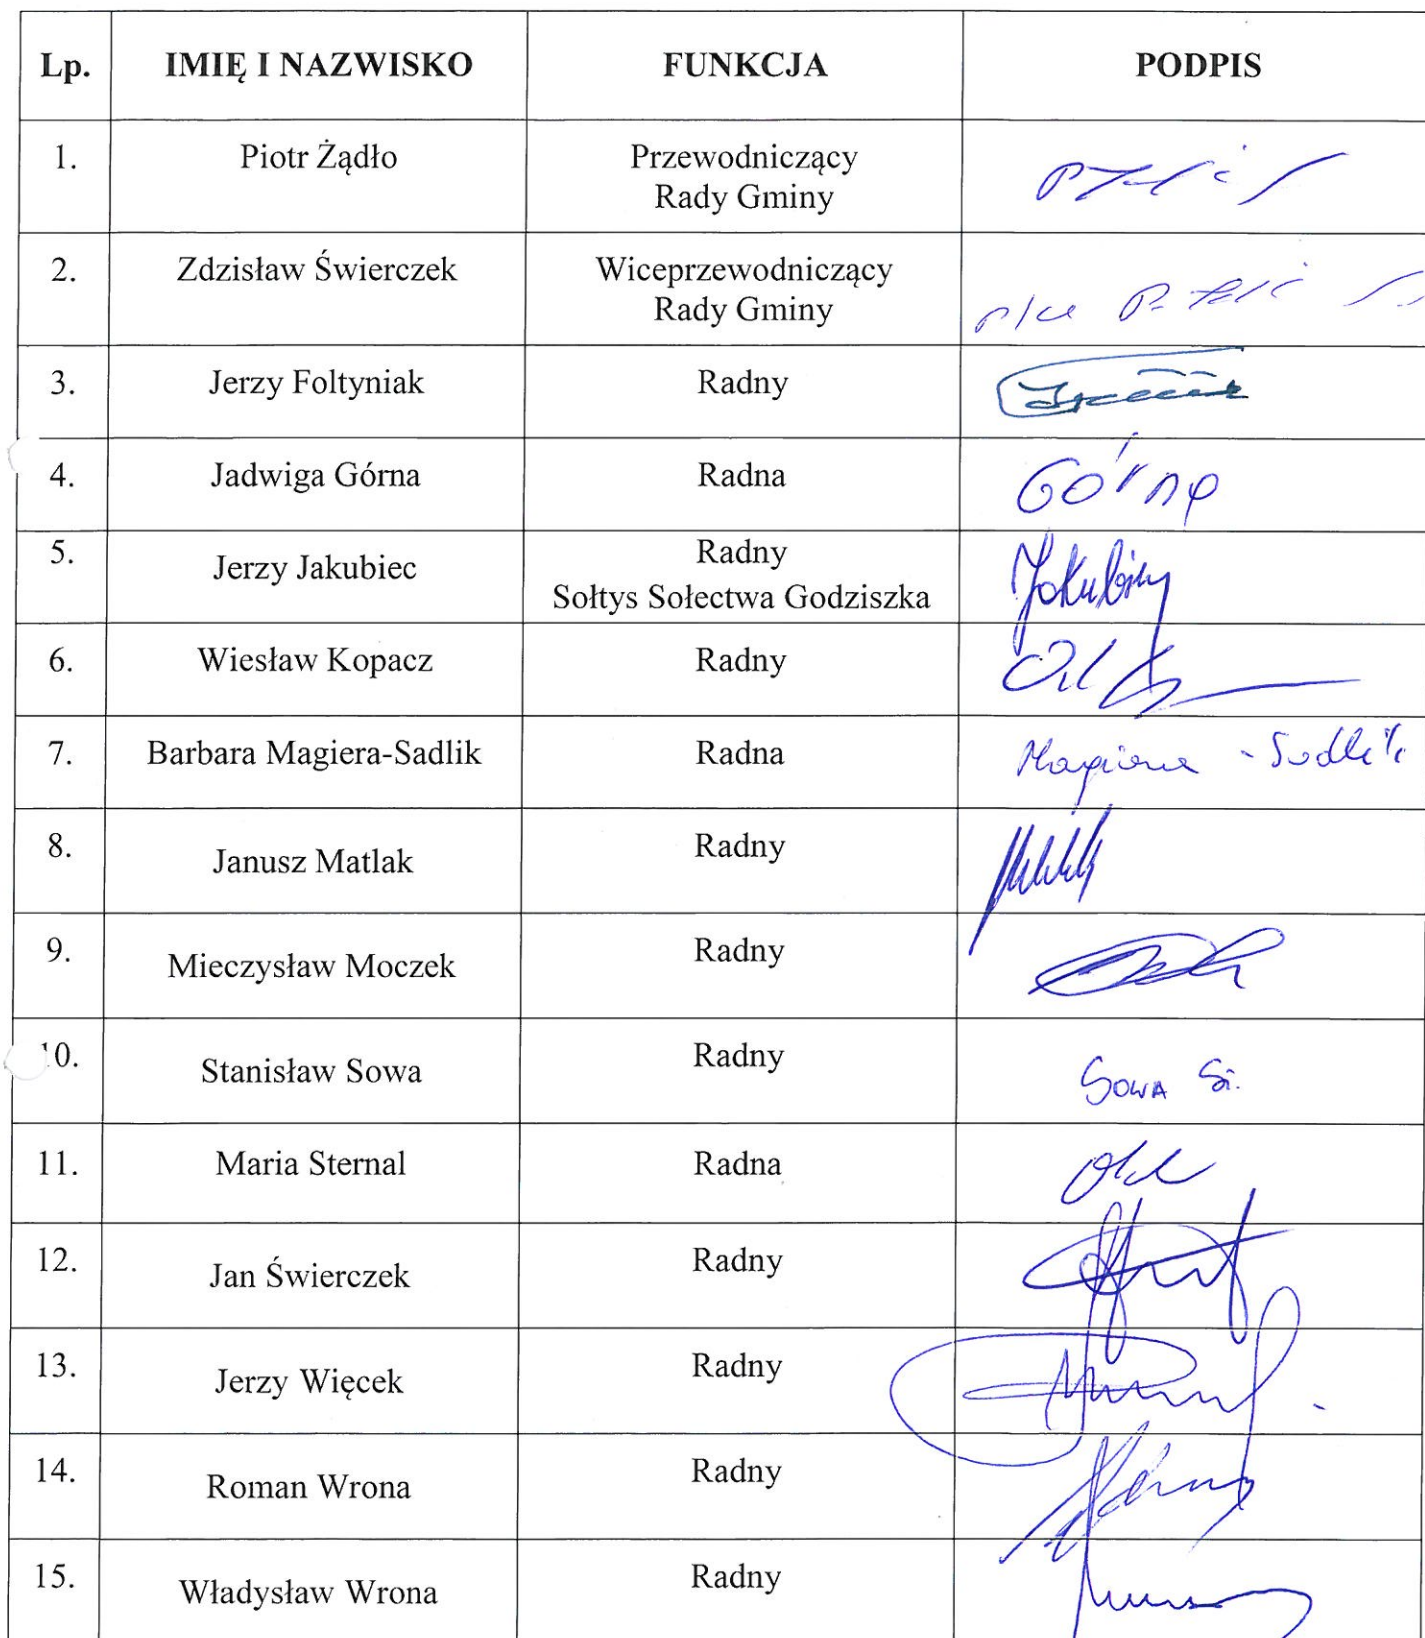 Lp. IMIĘ I NAZWISKO FUNKCJA PODPIS
1. Piotr Żądło Przewodniczący
Rady Gminy
2. Zdzisław Świerczek Wiceprzewodniczący
Rady Gminy
3. Jerzy Foltyniak Radny
4. Jadwiga Górna Radna Górna
5. Jerzy Jakubiec Radny
Sołtys Sołectwa Godziszka
6. Wiesław Kopacz Radny
7. Barbara Magiera-Sadlik Radna Magiera - Sadlik
8. Janusz Matlak Radny
9. Mieczysław Moczek Radny
10. Stanisław Sowa Radny Sowa St.
11. Maria Sternal Radna
12. Jan Świerczek Radny
13. Jerzy Więcek Radny
14. Roman Wrona Radny
15. Władysław Wrona Radny